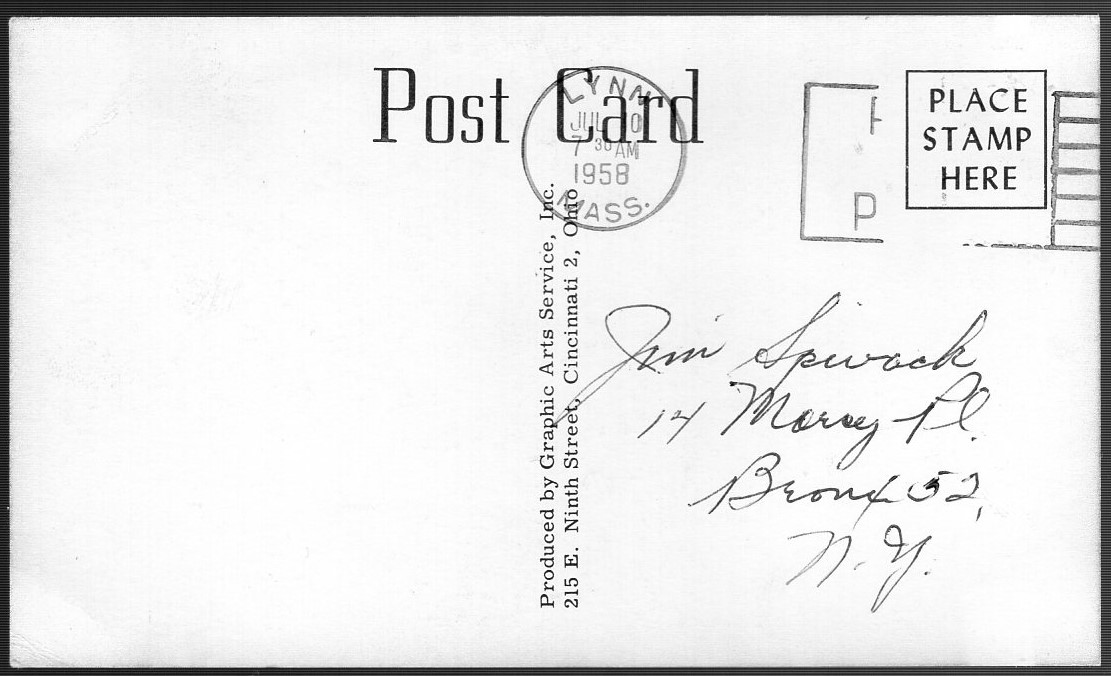 Post Card
LYNN
JUL 10
7 30 AM
1958
MASS.
P
PLACE
STAMP
HERE
Produced by Graphic Arts Service, Inc.
215 E. Ninth Street, Cincinnati 2, Ohio
Jim Spivack
14 Pl.
Bronx 52,
N.Y.